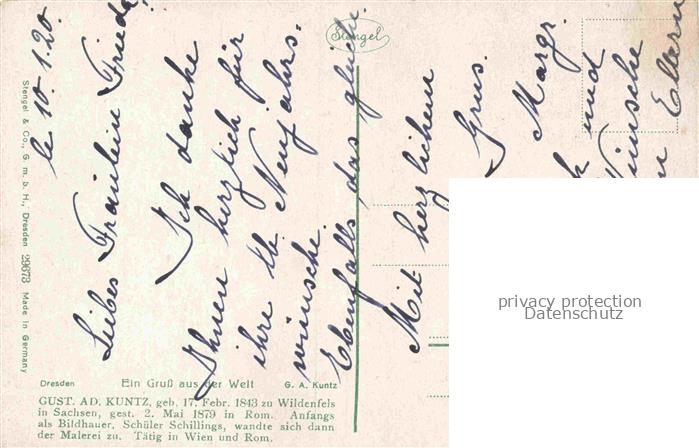 le 10. 1. 20.
Liebes Fräulein Frieda
Ich danke
Ihnen herzlich für
ihre lb. Neujahrs-
wünsche.
Ebenfalls das gleiche.
Mit herzlichem
Grus.
Margr.
und
Wünsche
Eltern
Stengel
Stengel & Co., G. m. b. H., Dresden 29673 Made in Germany
Dresden Ein Gruß aus der Welt G. A. Kuntz
GUST. AD. KUNTZ, geb. 17. Febr. 1843 zu Wildenfels
in Sachsen, gest. 2. Mai 1879 in Rom. Anfangs
als Bildhauer, Schüler Schillings, wandte sich dann
der Malerei zu. Tätig in Wien und Rom.
privacy protection
Datenschutz